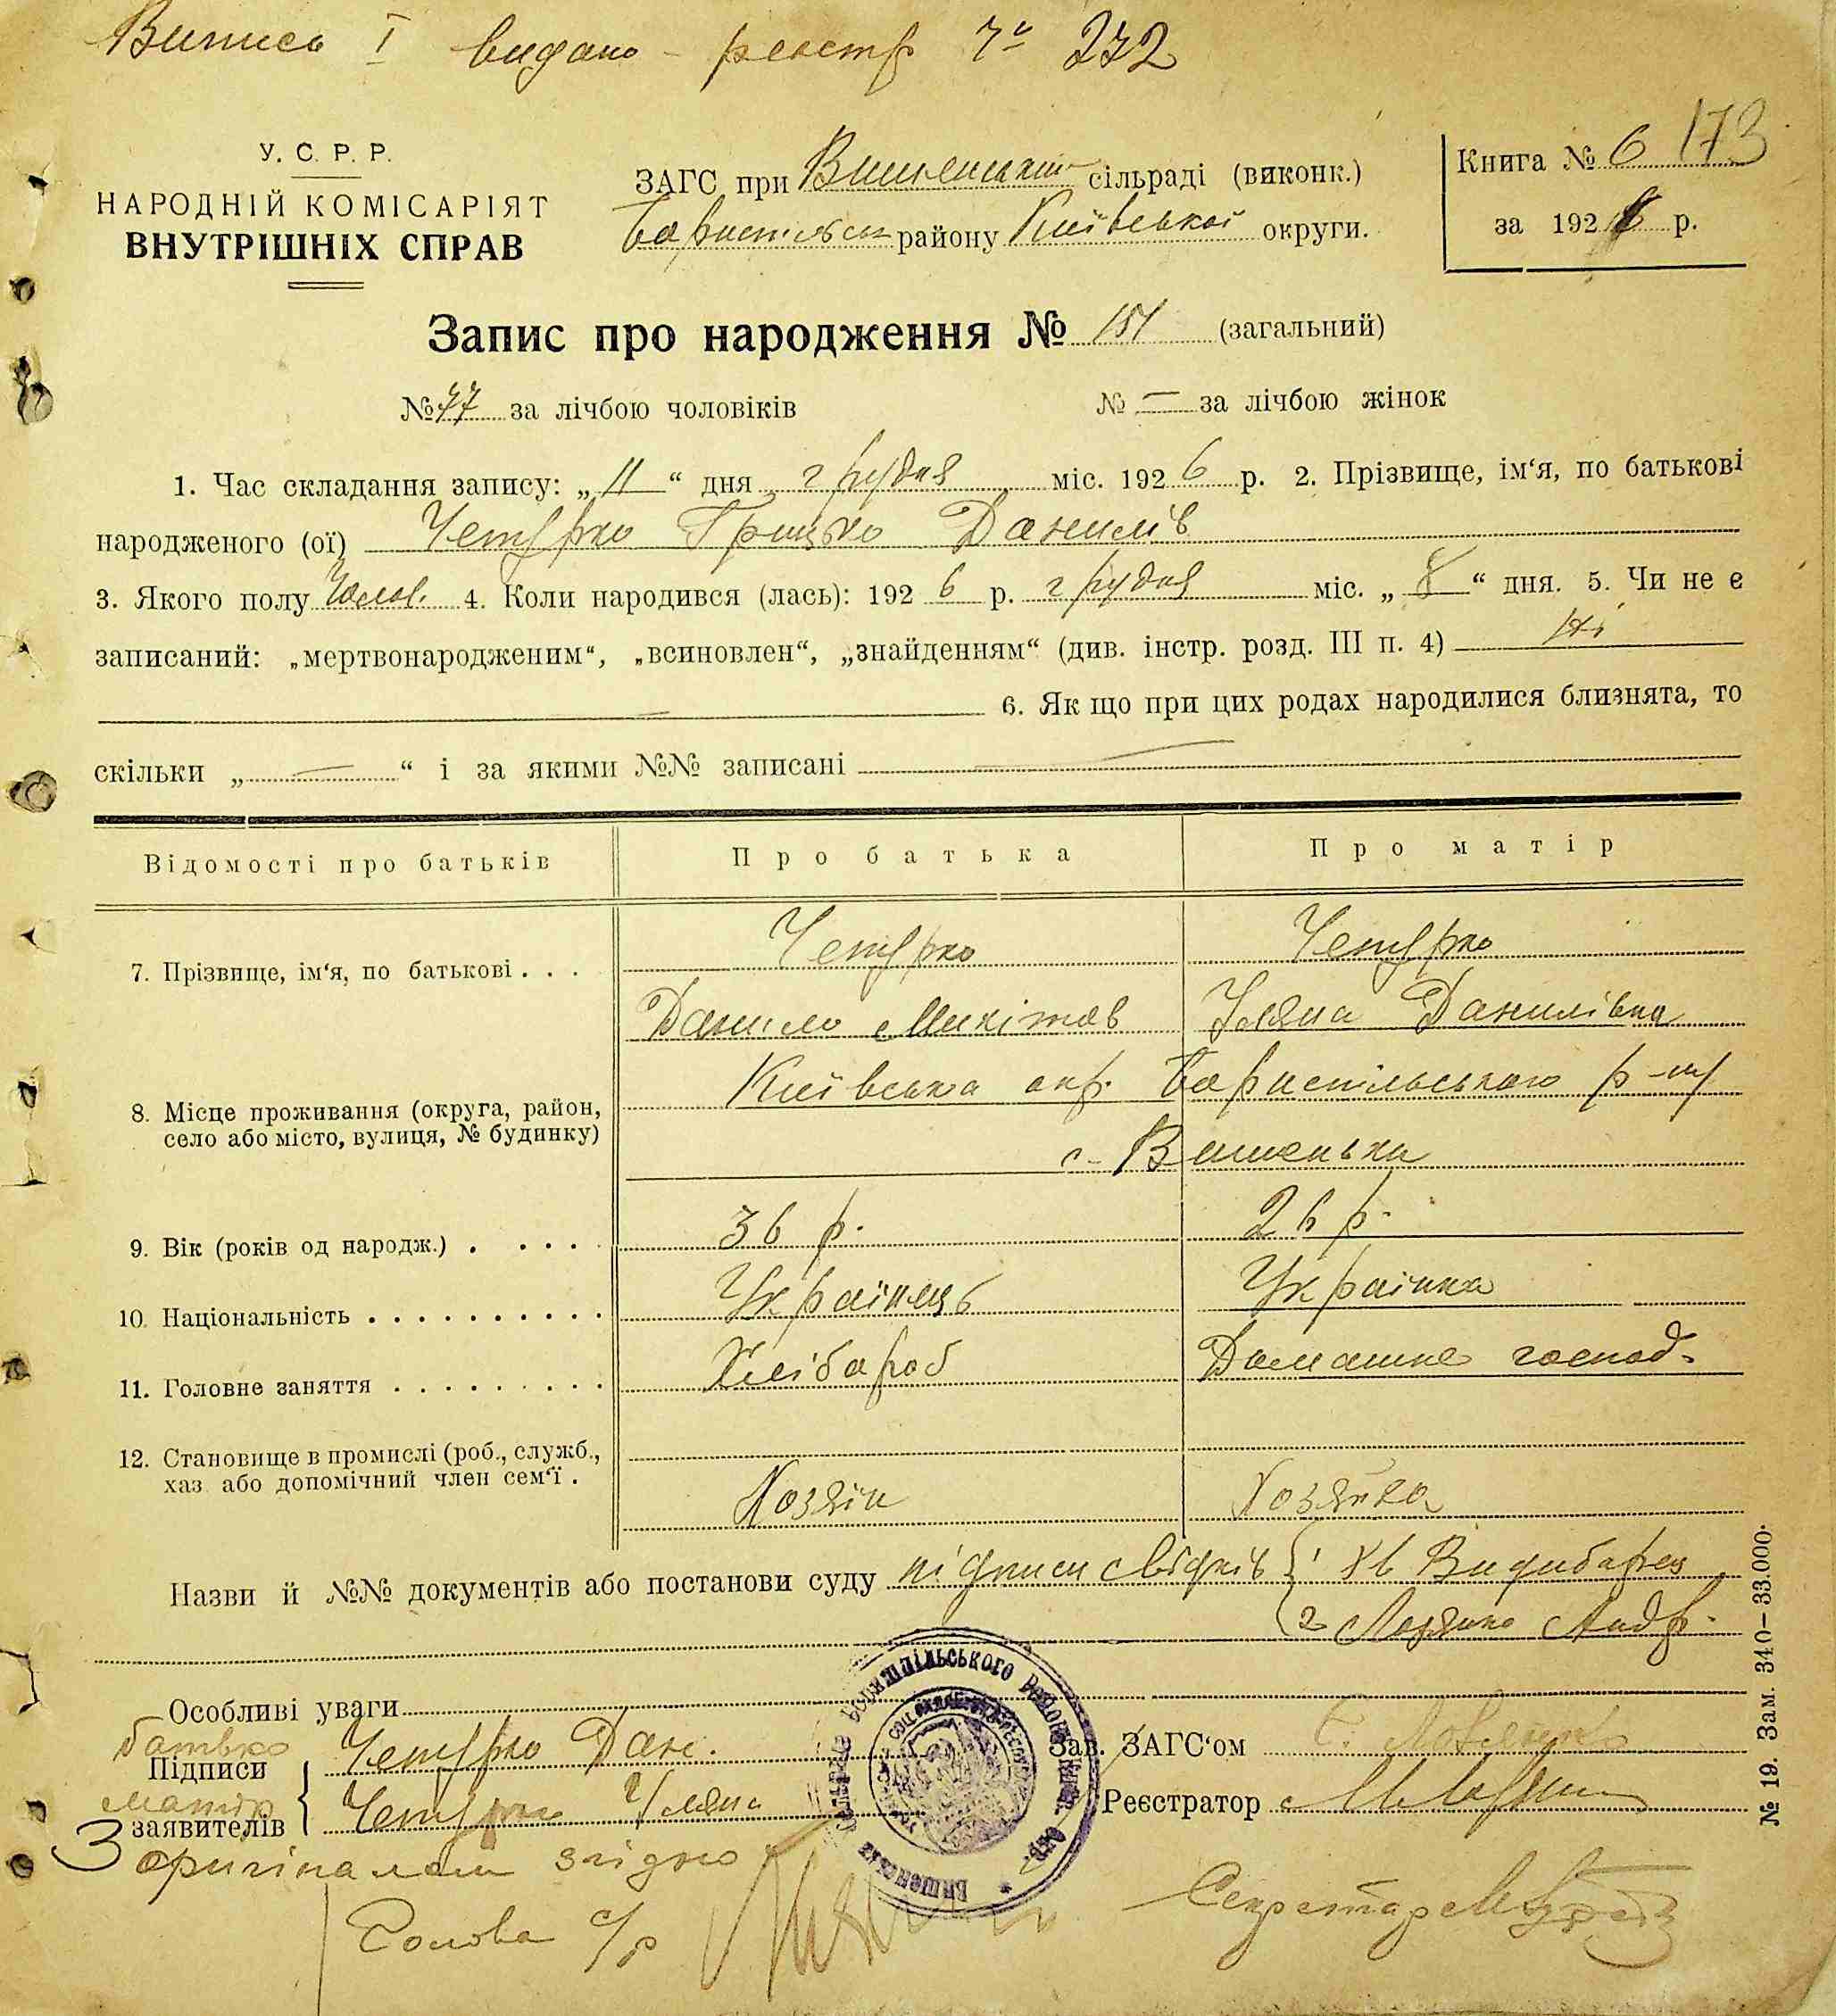 Випись I видано - реєстр № 272
У. С. Р. Р.
НАРОДНІЙ КОМІСАРІЯТ
ВНУТРІШНІХ СПРАВ
ЗАГС при Вишенській сільраді (виконк.)
Бориспільськ району Київської округи.
Книга № 6 173
за 1926 р.
Запис про народження № 151 (загальний)
№ 77 за лічбою чоловіків
№ — за лічбою жінок
1. Час складання запису: „ 11 “ дня грудня міс. 192 6 р. 2. Прізвище, ім‘я, по батькові
народженого (ої) Чемерко Грицько Данилів
3. Якого полу Чолов. 4. Коли народився (лась): 192 6 р. грудня міс. „ 8 “ дня. 5. Чи не є
записаний: „мертвонародженим“, „всиновлен“, „знайденням“ (див. інстр. розд. III п. 4) Ні
6. Як що при цих родах народилися близнята, то
скільки „ — “ і за якими №№ записані —
Відомості про батьків Про батька Про матір
7. Прізвище, ім‘я, по батькові . . .
Данило Микітов Уляна Данилівна
8. Місце проживання (округа, район,
село або місто, вулиця, № будинку)
Київська окр. Бориспільського р-ну
с. Вишеньки
9. Вік (років од народж.) . . . . . 36 р. 26 р.
10. Національність . . . . . . . . . . Українець Українка
11. Головне заняття . . . . . . . . . Хлібороб Домашнє господ.
12. Становище в промислі (роб., служб.,
хаз. або допомічний член сем‘ї .
Хозяін Хозяйка
Назви й №№ документів або постанови суду підписи свідків { 1
2 Андр.
Особливі уваги
батько
Підписи
матір
заявителів
Дан.
Уляна
Зав. ЗАГС‘ом
Реєстратор
№ 19. Зам. 340–33.000.
З оригіналом згідно
Голова с/р
Секретар